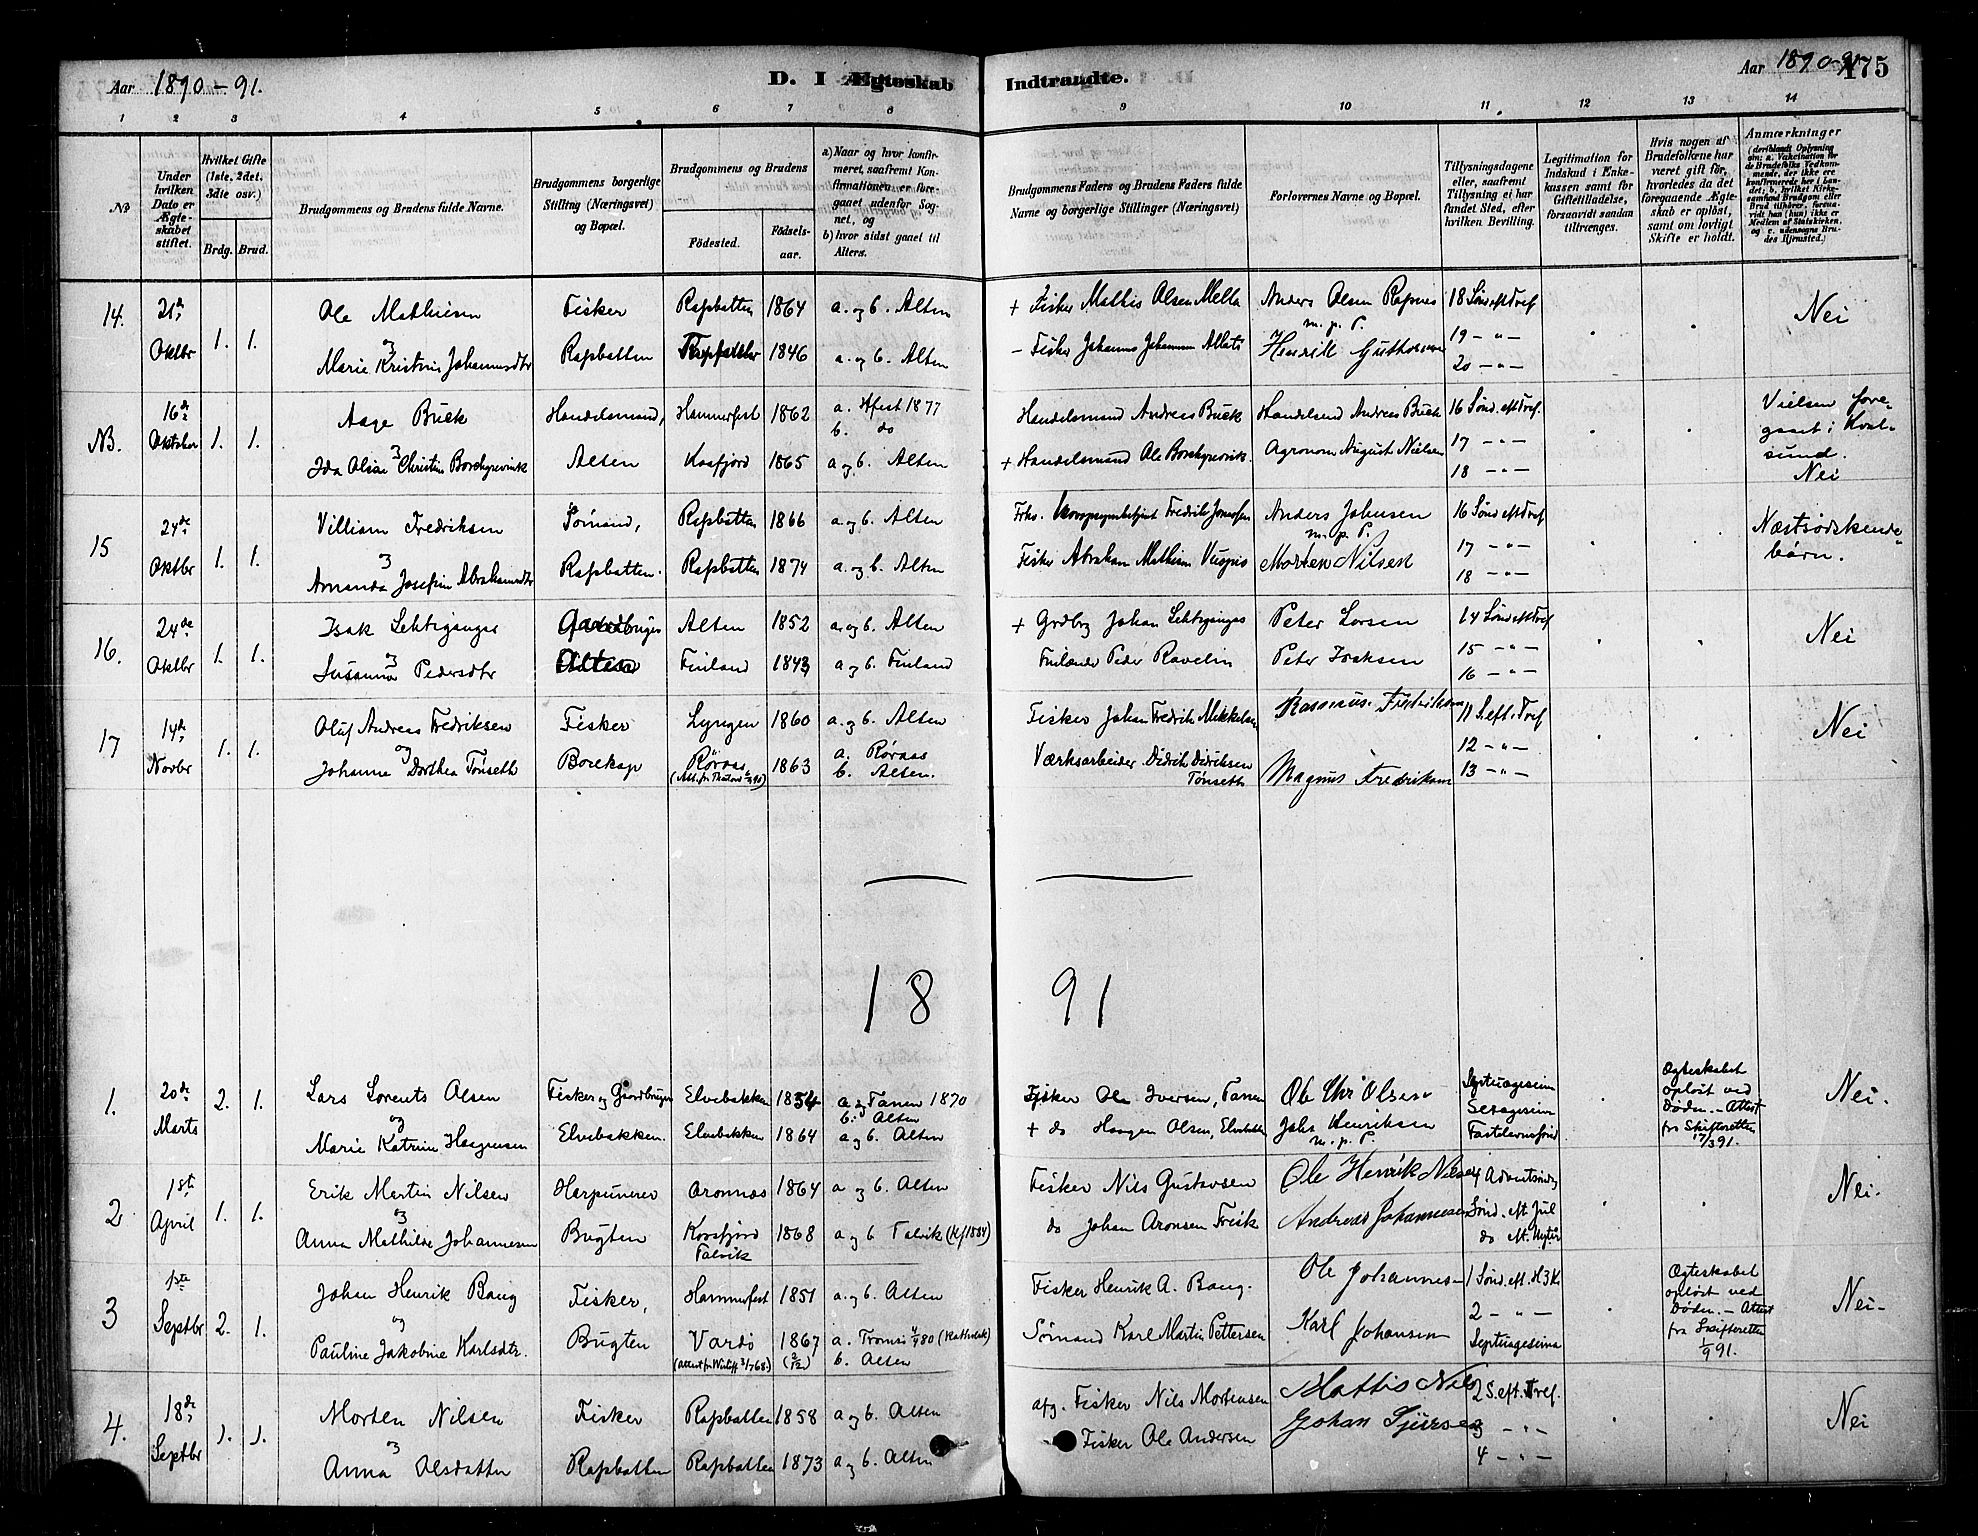 Aar 1890-91.
D. I Ægteskab Indtraadte.
Aar 1890-91
175
1 2 3 4 5 6 7 8 9 10 11 12 13 14
No
Under hvilken Dato er Ægteskabet stiftet.
Hvilket Gifte (1ste, 2det, 3die osv.)
Brdg. Brud.
Brudgommens og Brudens fulde Navne.
Brudgommens borgerlige Stilling (Næringsvei) og Bopæl.
Brudgommens og Brudens
Fødested.
Fødselsaar.
a) Naar og hvor konfirmeret, saafremt Konfirmationen er foregaaet udenfor Sognet, og
b) hvor sidst gaaet til Alters.
Brudgommens Faders og Brudens Faders fulde Navne og borgerlige Stillinger (Næringsvei)
Forlovernes Navne og Bopæl.
Tillysningsdagene eller, saafremt Tillysning ei har fundet Sted, efter hvilken Bevilling.
Legitimation for Indskud i Enkekassen samt for Giftetilladelse, forsaavidt saadan tiltrænges.
Hvis nogen af Brudefolkene har været gift før, hvorledes da det foregaaende Ægteskab er opløst, samt om lovligt Skifte er holdt.
Anmærkninger (deriblandt Oplysning om: a. Vakcination for de Brudefolks Vedkommende, der ikke ere konfirmerede her i Landet; b. hvilket Kirkesamfund Brudgom eller Brud tilhører, forsaavidt han (hun) ikke er Medlem af Statskirken, og c. udensogns Brudes Hjemsted.)
14. 21de Oktbr 1. 1. Ole Mathiesen Fisker Rafsbatten 1864 a. og b. Alten + Fisker Mathis Olsen Mella Anders Olsen Rafsnes m. p. P. 18 Sønd eft Tref Nei
og Marie Kristine Johannesdtr Rafsbotten 1846 a. og b. Alten - Fisker Johannes Johannesen Henrik 19 - " -
20 - " -
NB. 16de Oktober 1. 1. Aage Buck Handelsmand, Hammerfest 1862 a. Hfest 1877 b. do Handelsmand Andreas Buck Handelsmd Andreas Buck 16 Sønd. eft Tref. Vielsen foregaaet i Kvalsund.
og Ida Christine Alten Kaafjord 1865 a og b. Alten + Handelsmand Ole Agronom August Nielsen 17 - " -
18 - " - Nei
15 24de Oktbr 1. 1. Villiam Fredriksen Sømand, Rafsbotten 1866 a og b. Alten Anders Johnsen m. p. P. 16 Sønd eft Tref Næstsødskendebørn.
og Amanda Josefine Abrahamsdtr Rafsbotten. Rafsbotten 1874 a. og b. Alten Fisker Abraham Mathisen Morten Nilsen 17 - " -
18 - " -
16. 24de Oktbr 1. 1. Isak Lehtiganger Gaardbruger Alten 1852 a. og b. Alten + Grdbrg Johan Lehtiganger Peter Lorsen 14 Sønd eft Tref Nei
og Susanna Pedersdtr Alten Finland 1843 a og b. Finland Finlænder Peder Ravelin Peter Isaksen 15 - " -
16 - " -
17 14de Novbr 1. 1. Oluf Andreas Fredriksen Fisker Lyngen 1860 a. og b. Alten Fisker Johan Fredrik Mikkelsen Rasmus Fredriksen 11 S. eft. Tref Nei
og Johanne Dorthea Tønseth Borekop Røraas 1863 a. Røraas b. Alten. Værksarbeider Didrik Didriksen Tønseth Magnus Fredriksen 12 - " -
13 - " -
18 91
1. 20de Marts 2. 1. Lars Lorents Olsen Fisker og Gaardbruger Elvebakken 1854 a Tanen 1870 b. Alten Fisker Ole Iversen, Tanen Ole Chr Olsen Septuagesima Ægteskabet opløst ved Døden. - Attest fra Skifteretten 17/3 91. Nei.
og Marie Katrine Haagensen Elvebakken. Elvebakken 1864 a og b. Alten + do Haagen Olsen, Elvebakken Johs Henriksen m. p. P. Sexagesima Fastelavnssønd
2 1ste April 1. 1. Erik Martin Nilsen Harpunerer Aronnæs 1864 a og b. Alten Fisker Nils Gustavsen Ole Henrik Nilsen 4 Adventsøndg Nei.
og Anna Mathilde Johannesen Bugten Korsfjord Talvik 1868 a og b Talvik (Kf 1884) do Johan Aronsen Frisk Andreas Johannesen Sønd. eft Jul
do eft. Nytår
3 1ste Septbr 2. 1. Johan Henrik Bang Fisker, Hammerfest 1851 a. og b. Alten Fisker Henrik A. Bang. Ole Johannesen 1 Sønd. eft. H3K. Ægteskabet opløst ved Døden. - Attest fra Skifteretten 1/9 91. Nei-
og Pauline Jakobine Karlsdtr. Bugten Vardø 1867 a. Tromsø 80 (Katholsk) b. Alten Sømand Karl Martin Pettersen Karl Johansen 2 - " -
Septuagesima
4. 18de Septbr 1. 1. Morten Nilsen Fisker Rafsbotten 1858 a og b. Alten afg. Fisker Nils Mortensen Mattis Nils 2 S. eft. Tref. Nei
og Anna Olsdatter Rafsbotten Rafsbotten 1873 a og b. Alten Fisker Ole Andersen Johan 3 - " -
4 - " -